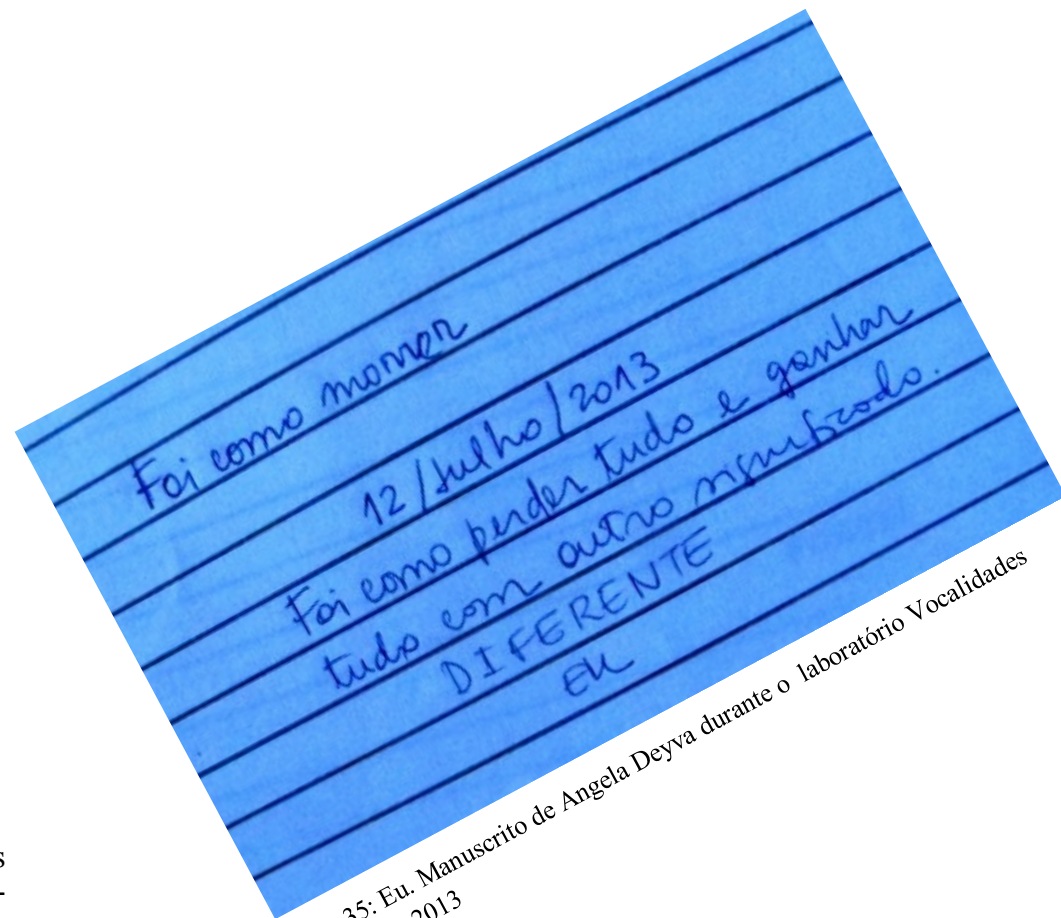 Foi como morrer
12/Julho/2013
Foi como perder tudo e ganhar
tudo com outro significado.
DIFERENTE
EU
35: Eu. Manuscrito de Angela Deyva durante o laboratório Vocalidades
2013
s
-